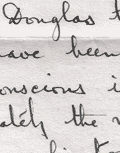 Douglas t
have been
onscious i
ately the